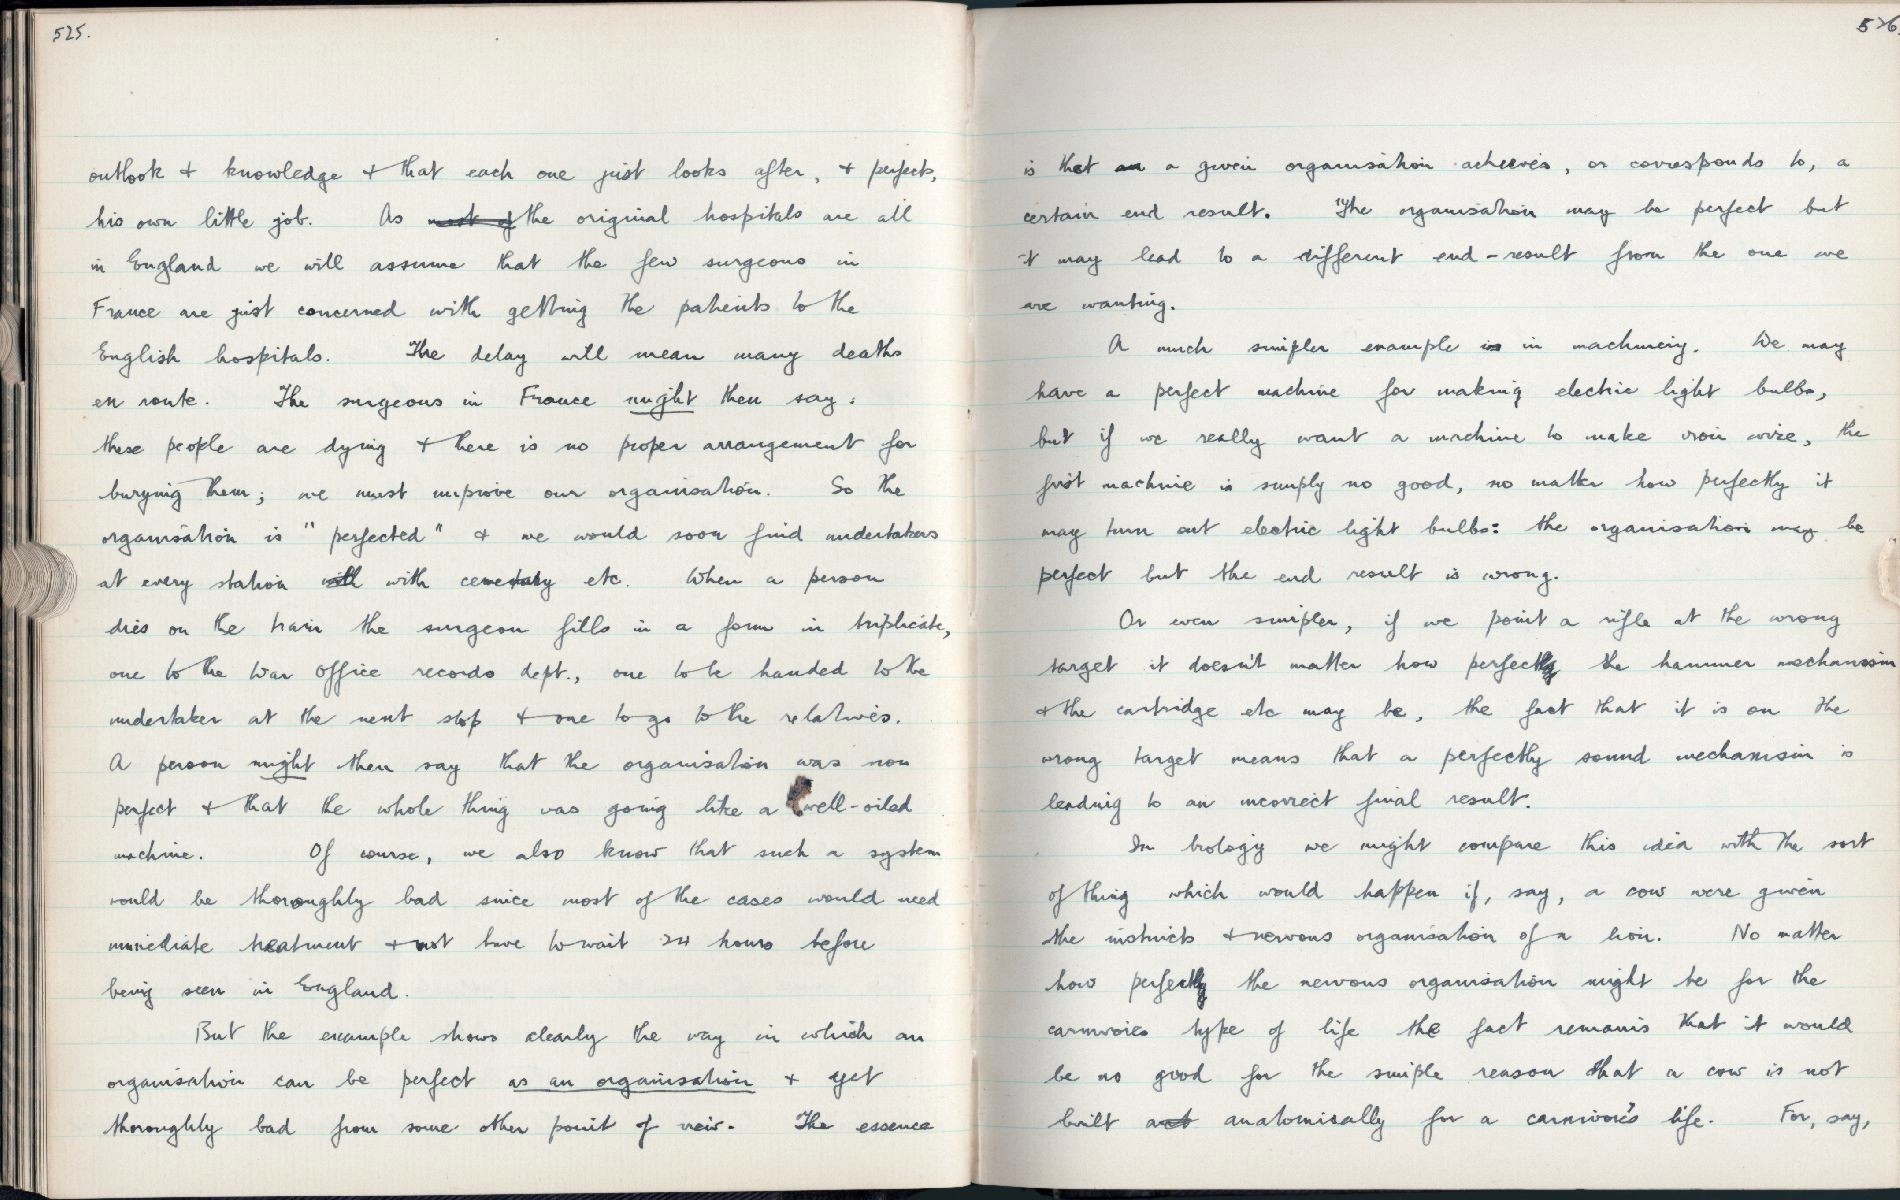 525.
outlook & knowledge & that each one just looks after, & perfects,
his own little job. As most of the original hospitals are all
in England we will assume that the few surgeons in
France are just concerned with getting the patients to the
English hospitals. The delay will mean many deaths
en route. The surgeons in France might then say:
these people are dying & there is no proper arrangement for
burying them; we must improve our organisation. So the
organisation is "perfected" & we would soon find undertakers
at every station with with cemetary etc. When a person
dies on the train the surgeon fills in a form in triplicate,
one to the War Office records dept., one to be handed to the
undertaker at the next stop & one to go to the relatives.
A person might then say that the organisation was now
perfect & that the whole thing was going like a well-oiled
machine. Of course, we also know that such a system
would be thoroughly bad since most of the cases would need
immediate treatment & not have to wait 24 hours before
being seen in England.
But the example shows clearly the way in which an
organisation can be perfect as an organisation & yet
thoroughly bad from some other point of view. The essence
526.
is that an a given organisation achieves, or corresponds to, a
certain end result. The organisation may be perfect but
it may lead to a different end-result from the one we
are wanting.
A much simpler example is in machinery. We may
have a perfect machine for making electric light bulbs,
but if we really want a machine to make iron wire, the
first machine is simply no good, no matter how perfectly it
may turn out electric light bulbs: the organisation may be
perfect but the end result is wrong.
Or even simpler, if we point a rifle at the wrong
target it doesn't matter how perfectly the hammer mechanism
& the cartridge etc may be, the fact that it is on the
wrong target means that a perfectly sound mechanism is
leading to an incorrect final result.
In biology we might compare this idea with the sort
of thing which would happen if, say, a cow were given
the instincts & nervous organisation of a lion. No matter
how perfectly the nervous organisation might be for the
carnivores type of life the fact remains that it would
be no good for the simple reason that a cow is not
built anat anatomically for a carnivore's life. For, say,